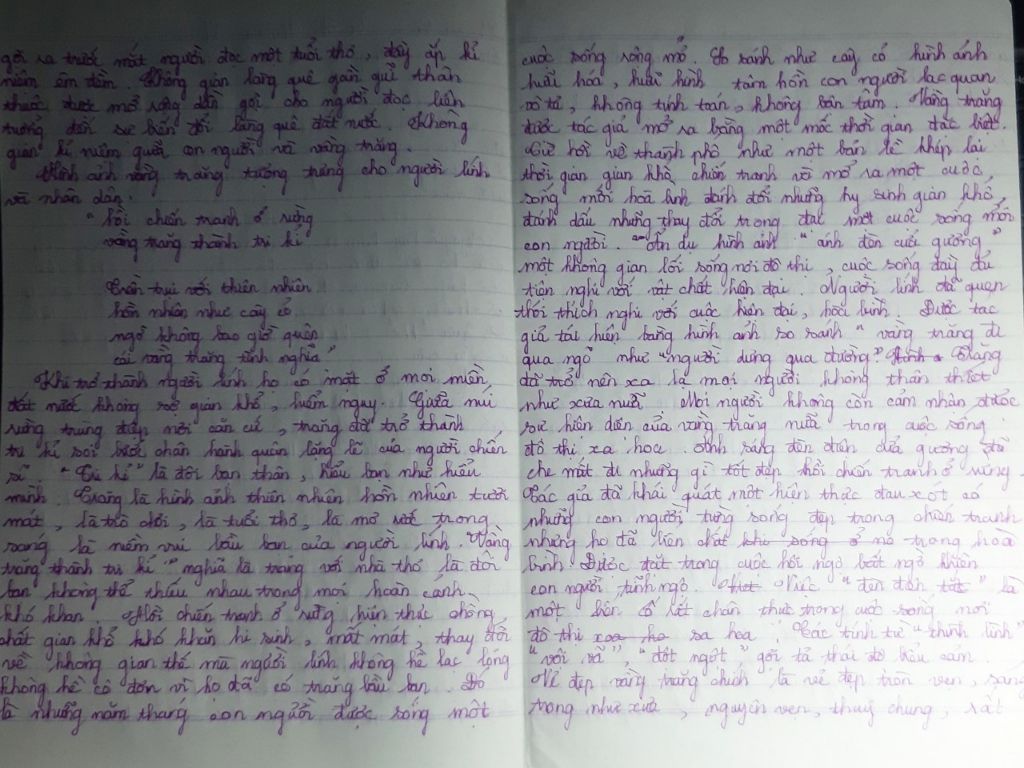 gợi ra trước mắt người đọc một tuổi thơ, đầy ắp kỉ
niệm êm đềm. Không gian làng quê gần gũi thân
thuộc được mở rộng dần gợi cho người đọc liên
tưởng đến sự biến đổi làng quê đất nước. Không
gian kỉ niệm giữa con người và vầng trăng.
Hình ảnh vầng trăng tượng trưng cho người lính
và nhân dân.
"hồi chiến tranh ở rừng
vầng trăng thành tri kỉ
Trần trụi với thiên nhiên
hồn nhiên như cây cỏ
ngỡ không bao giờ quên
cái vầng trăng tình nghĩa"
Khi trở thành người lính họ có mặt ở mọi miền
đất nước không sợ gian khổ, hiểm nguy. Giữa núi
rừng trùng điệp nơi căn cứ, trăng đã trở thành
tri kỉ soi bước chân hành quân lặng lẽ của người chiến
sĩ. "Tri kỉ" là đôi bạn thân, hiểu bạn như hiểu
mình. Trăng là hình ảnh thiên nhiên hồn nhiên tươi
mát, là trò chơi, là tuổi thơ, là mơ ước trong
sáng là niềm vui bầu bạn của người lính. Vầng
trăng thành tri kỉ" nghĩa là trăng với nhà thơ là đôi
bạn không thể thiếu nhau trong mọi hoàn cảnh
khó khăn. Hồi chiến tranh ở rừng hiện thực chồng
chất gian khổ khó khăn hi sinh, mất mát, thay đổi
về không gian thế mà người lính không hề lạc lõng
không hề cô đơn vì họ đã có trăng bầu bạn. Đó
là những năm tháng con người được sống một
cuộc sống sông mơ. So sánh như cây cỏ hình ảnh
huấn hoá, huấn hình tâm hồn con người lạc quan
vô tư, không tính toán, không bận tâm. Vầng trăng
được tác giả mở ra bằng một mốc thời gian đặc biệt.
Từ hồi về thành phố như một bản lề khép lại
thời gian gian khổ, chiến tranh và mở ra một cuộc
sống mới hoà bình đánh đổi những hy sinh gian khổ,
đánh dấu những thay đổi trong đạc một cuộc sống mỗi
con người. Ẩn dụ hình ảnh "ánh đèn cửa gương"
một không gian lối sống nơi đô thị, cuộc sống đầy đủ
tiện nghi với vật chất hiện đại. Người lính đã quen
thói thích nghi với cuộc hiện đại, hoà bình. Được tác
giả tái hiện bằng hình ảnh so sánh "vầng trăng đi
qua ngõ như "người dưng qua đường". Trăng
đã trở nên xa lạ mọi người không thân thiết
như xưa nữa. Mọi người không còn cảm nhận được
sự hiện diện của vầng trăng nữa trong cuộc sống
đô thị xa hoa. Ánh sáng đèn điện cửa gương đã
che mất đi những gì tốt đẹp hồi chiến tranh ở rừng.
Tác giả đã khái quát một hiện thực đau xót có
những con người từng sống đẹp trong chiến tranh
nhưng họ đã biến chất khi sống ở nơ trong hoà
bình Được đặt trong cuộc hội ngộ bất ngờ khiến
con người tỉnh ngộ. Việc "đèn điện tắt" là
một biến cố rất chân thực trong cuộc sống nơi
đô thị xoa họ sa hoa. Các tính từ "thình lình"
"vội vã", "đột ngột" gợi tả thái độ biểu cảm.
Vẻ đẹp vầng trăng chính là vẻ đẹp tròn vẹn, sáng
trong như xưa, nguyên vẹn, thuỷ chung, rất